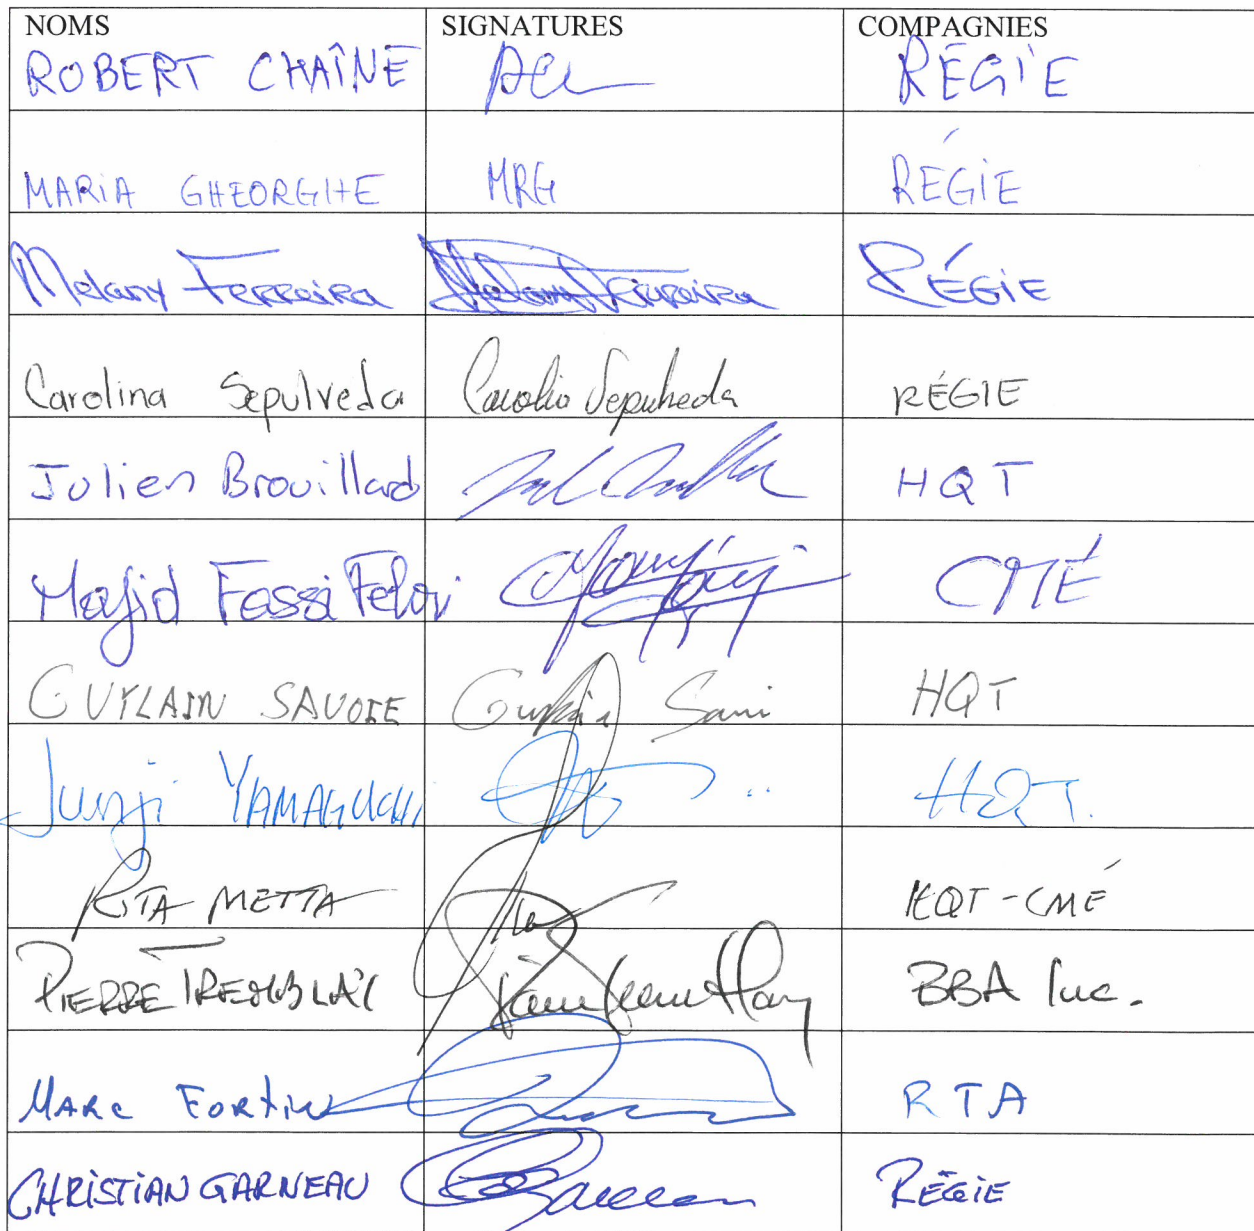 NOMS SIGNATURES COMPAGNIES
ROBERT CHAÎNÉ RÉGIE
MARIA GHEORGHE MRG RÉGIE
Melany Ferreira Melany Ferreira RÉGIE
Carolina Sepulveda Carolina Sepulveda RÉGIE
Julien Brouillard HQT
Majid Fassi Fehri CMÉ
GUYLAIN SAVOIE HQT
Junji YAMAGUCHI HQT.
RITA METTA HQT-CMÉ
PIERRE TREMBLAY BBA Inc.
MARC FORTIN RTA
CHRISTIAN GARNEAU RÉGIE